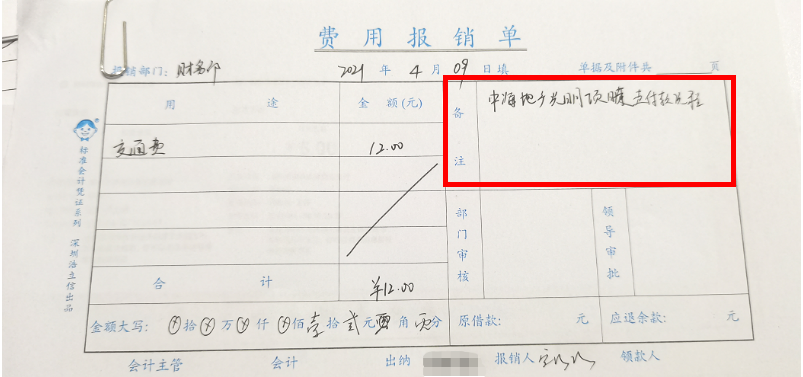 费用报销单
报销部门：财务部 2021年4月09日填 单据及附件共 页
用途 金额(元) 备注
交通费 12.00
部门审核 领导审批
合计 ¥12.00
金额大写：ⓧ拾ⓧ万ⓧ仟ⓧ佰壹拾贰元零角零分 原借款： 元 应退余款： 元
会计主管 会计 出纳 报销人 领款人
标准会计凭证系列 深圳浩立信出品